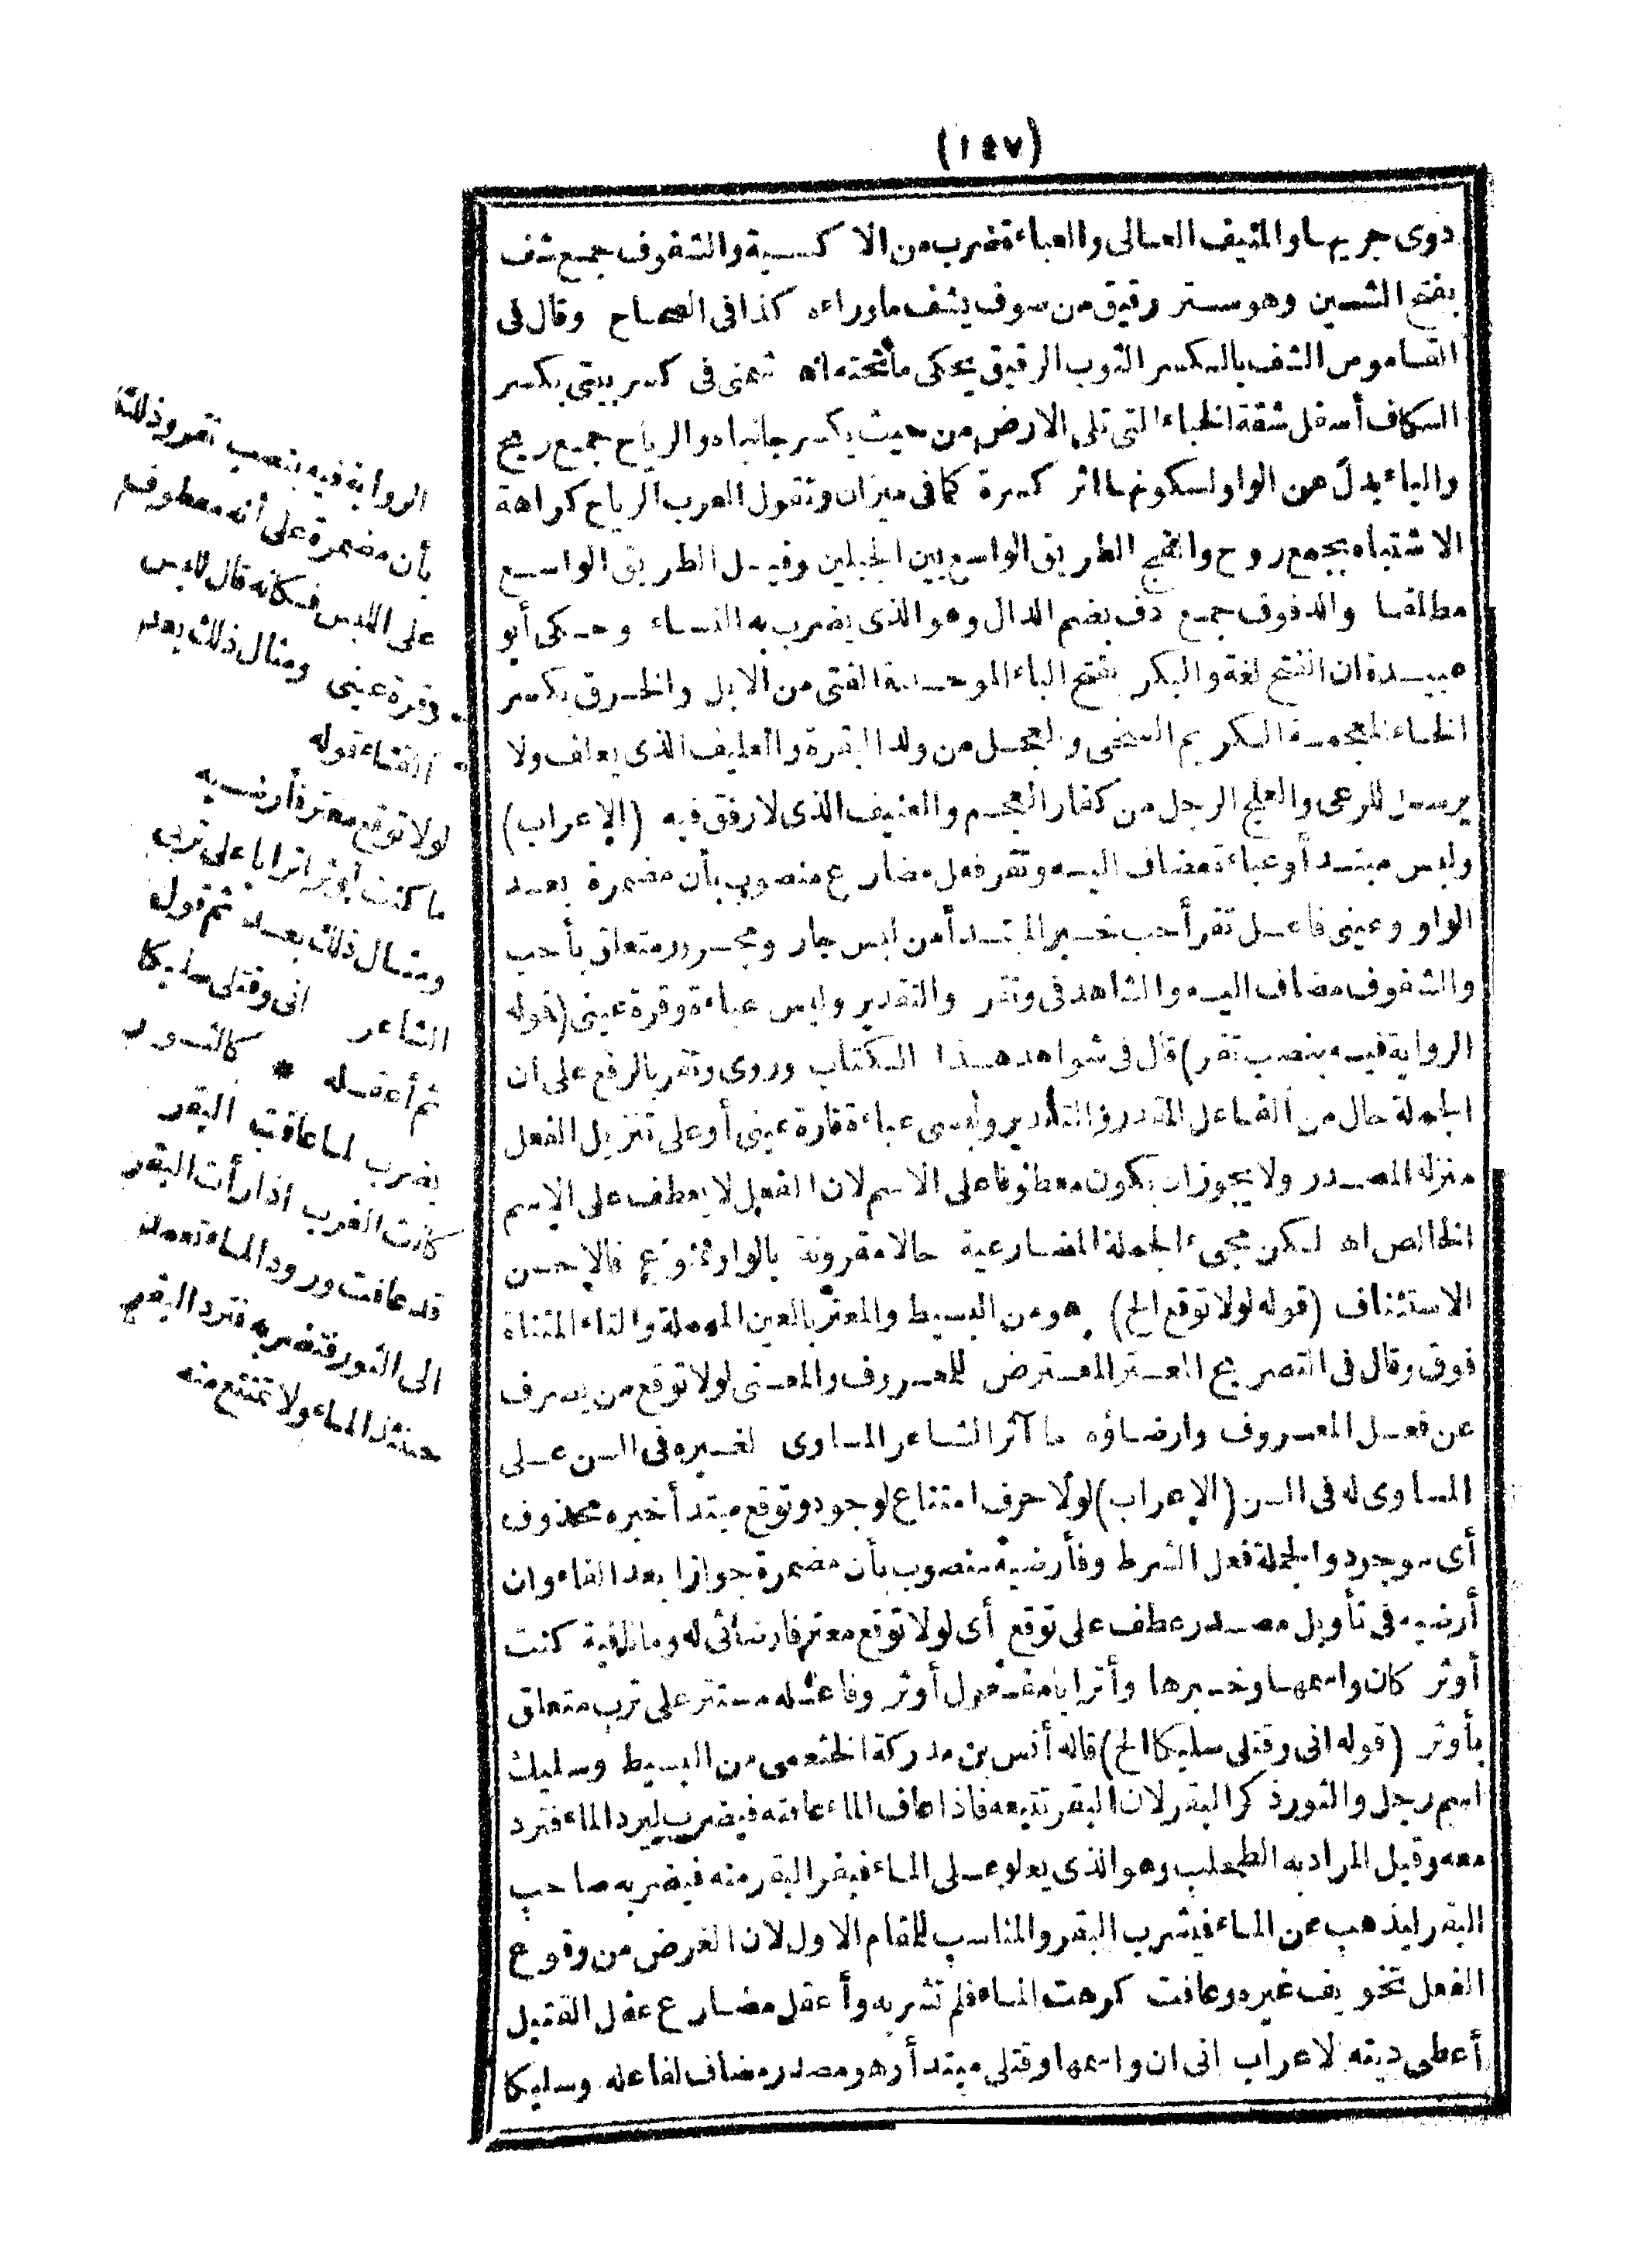 (١٤٧)
دوى جريها والمنيف العالى والعباءة ضرب من الاكسية والشفوف جمع شف
بفتح الشين وهو ستر رقيق من صوف يشف ماوراءه كذا فى الصحاح وقال فى
القاموس الشف بالكسر الثوب الرقيق يحكى ماتحته اه شمنى فى كسر بيتى بكسر
الكاف أسفل شقة الخباء التى تلى الارض من حيث يكسر جانباه والرياح جمع ريح
والياء بدل عن الواو لسكونها اثر كسرة كما فى ميزان وتقول العرب الرياح كراهة
الاشتباه بجمع روح والفج الطريق الواسع بين الجبلين وقيل الطريق الواسع
مطلقا والدفوف جمع دف بضم الدال وهو الذى يضرب به النساء وحكى أبو
عبيدة ان الفتح لغة والبكر بفتح الباء الموحدة الفتى من الابل والخرق بكسر
الخاء المعجمة الكريم السخى والعجل من ولد البقرة والعليف الذى يعلف ولا
يرسل للرعى والعلج الرجل من كفار العجم والعنيف الذى لا رفق فيه (الإعراب)
ولبس مبتدأ وعباءة مضاف اليه وتقر فعل مضارع منصوب بأن مضمرة بعد
الواو وعينى فاعل تقر أحب خبر المبتدأ من لبس جار ومجرور متعلق بأحب
والشفوف مضاف اليه والشاهد فى وتقر والتقدير ولبس عباءة وقرة عينى (قوله
الرواية فيه بنصب تقر) قال فى شواهد هذا الكتاب وروى وتقر بالرفع على ان
الجملة حال من الفاعل المقدر والتقدير ولبسى عباءة قارة عينى أو على تنزيل الفعل
منزلة المصدر ولا يجوز ان يكون معطوفا على الاسم لان الفعل لا يعطف على الاسم
الخالص اه لكن مجىء الجملة المضارعية حالا مقرونة بالواو ممنوع فالاحسن
الاستئناف (قوله لولا توقع الخ) هو من البسيط والمعتر بالعين المهملة والتاء المثناة
فوق وقال فى التصريح المعتر المعترض للمعروف والمعنى لولا توقع من يصرف
عن فعل المعروف وارضاؤه ما آثر الشاعر المساوى لغيره فى السن على
المساوى له فى السن (الإعراب) لولا حرف امتناع لوجود وتوقع مبتدأ خبره محذوف
أى موجود والجملة فعل الشرط وفأرضيه منصوب بأن مضمرة جوازا بعد الفاء وان
أرضيه فى تأويل مصدر عطف على توقع أى لولا توقع معتر فارضائى له وما نافية كنت
أوثر كان واسمها وخبرها وأترابا مفعول أوثر وفاعله مستتر على ترب متعلق
بأوثر (قوله انى وقتلى سليكا الخ) قاله أنس بن مدركة الخثعمى من البسيط وسليك
اسم رجل والثور ذكر البقر لان البقر تتبعه فاذا عاف الماء عافته فيضرب ليرد الماء فترد
معه وقيل المراد به الطحلب وهو الذى يعلو على الماء فيفر البقر منه فيضربه صاحب
البقر ليذهب عن الماء فيشرب البقر والمناسب للمقام الاول لان الغرض من وقوع
الفعل تخويف غيره وعافت كرهت الماء فلم تشربه وأعقل مضارع عقل القتيل
أعطى ديته الاعراب انى ان واسمها وقتلى مبتدأ وهو مصدر مضاف لفاعله وسليكا
الرواية فيه بنصب تقر وذلك
بأن مضمرة على أنه معطوف
على اللبس فكانه قال للبس
وقرة عينى ومثال ذلك بعد
الفاء قوله
لولا توقع معتر فأرضيه
ما كنت أوثر اترابا على ترب
ومثال ذلك بعد ثم قول
الشاعر انى وقتلى سليكا
ثم أعقله * كالثور
يضرب لما عافت البقر
كانت العرب اذا رأت البقر
قد عافت ورود الماء تعمد
الى الثور فتضربه فترد البقر
حينئذ الماء ولا تمتنع منه